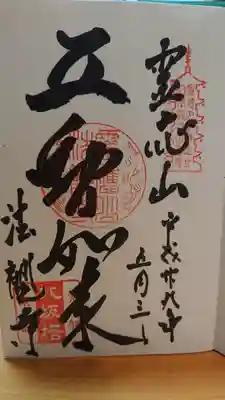 霊應山
平成廿九年
五月三日
五智如来
法観寺
八坂塔